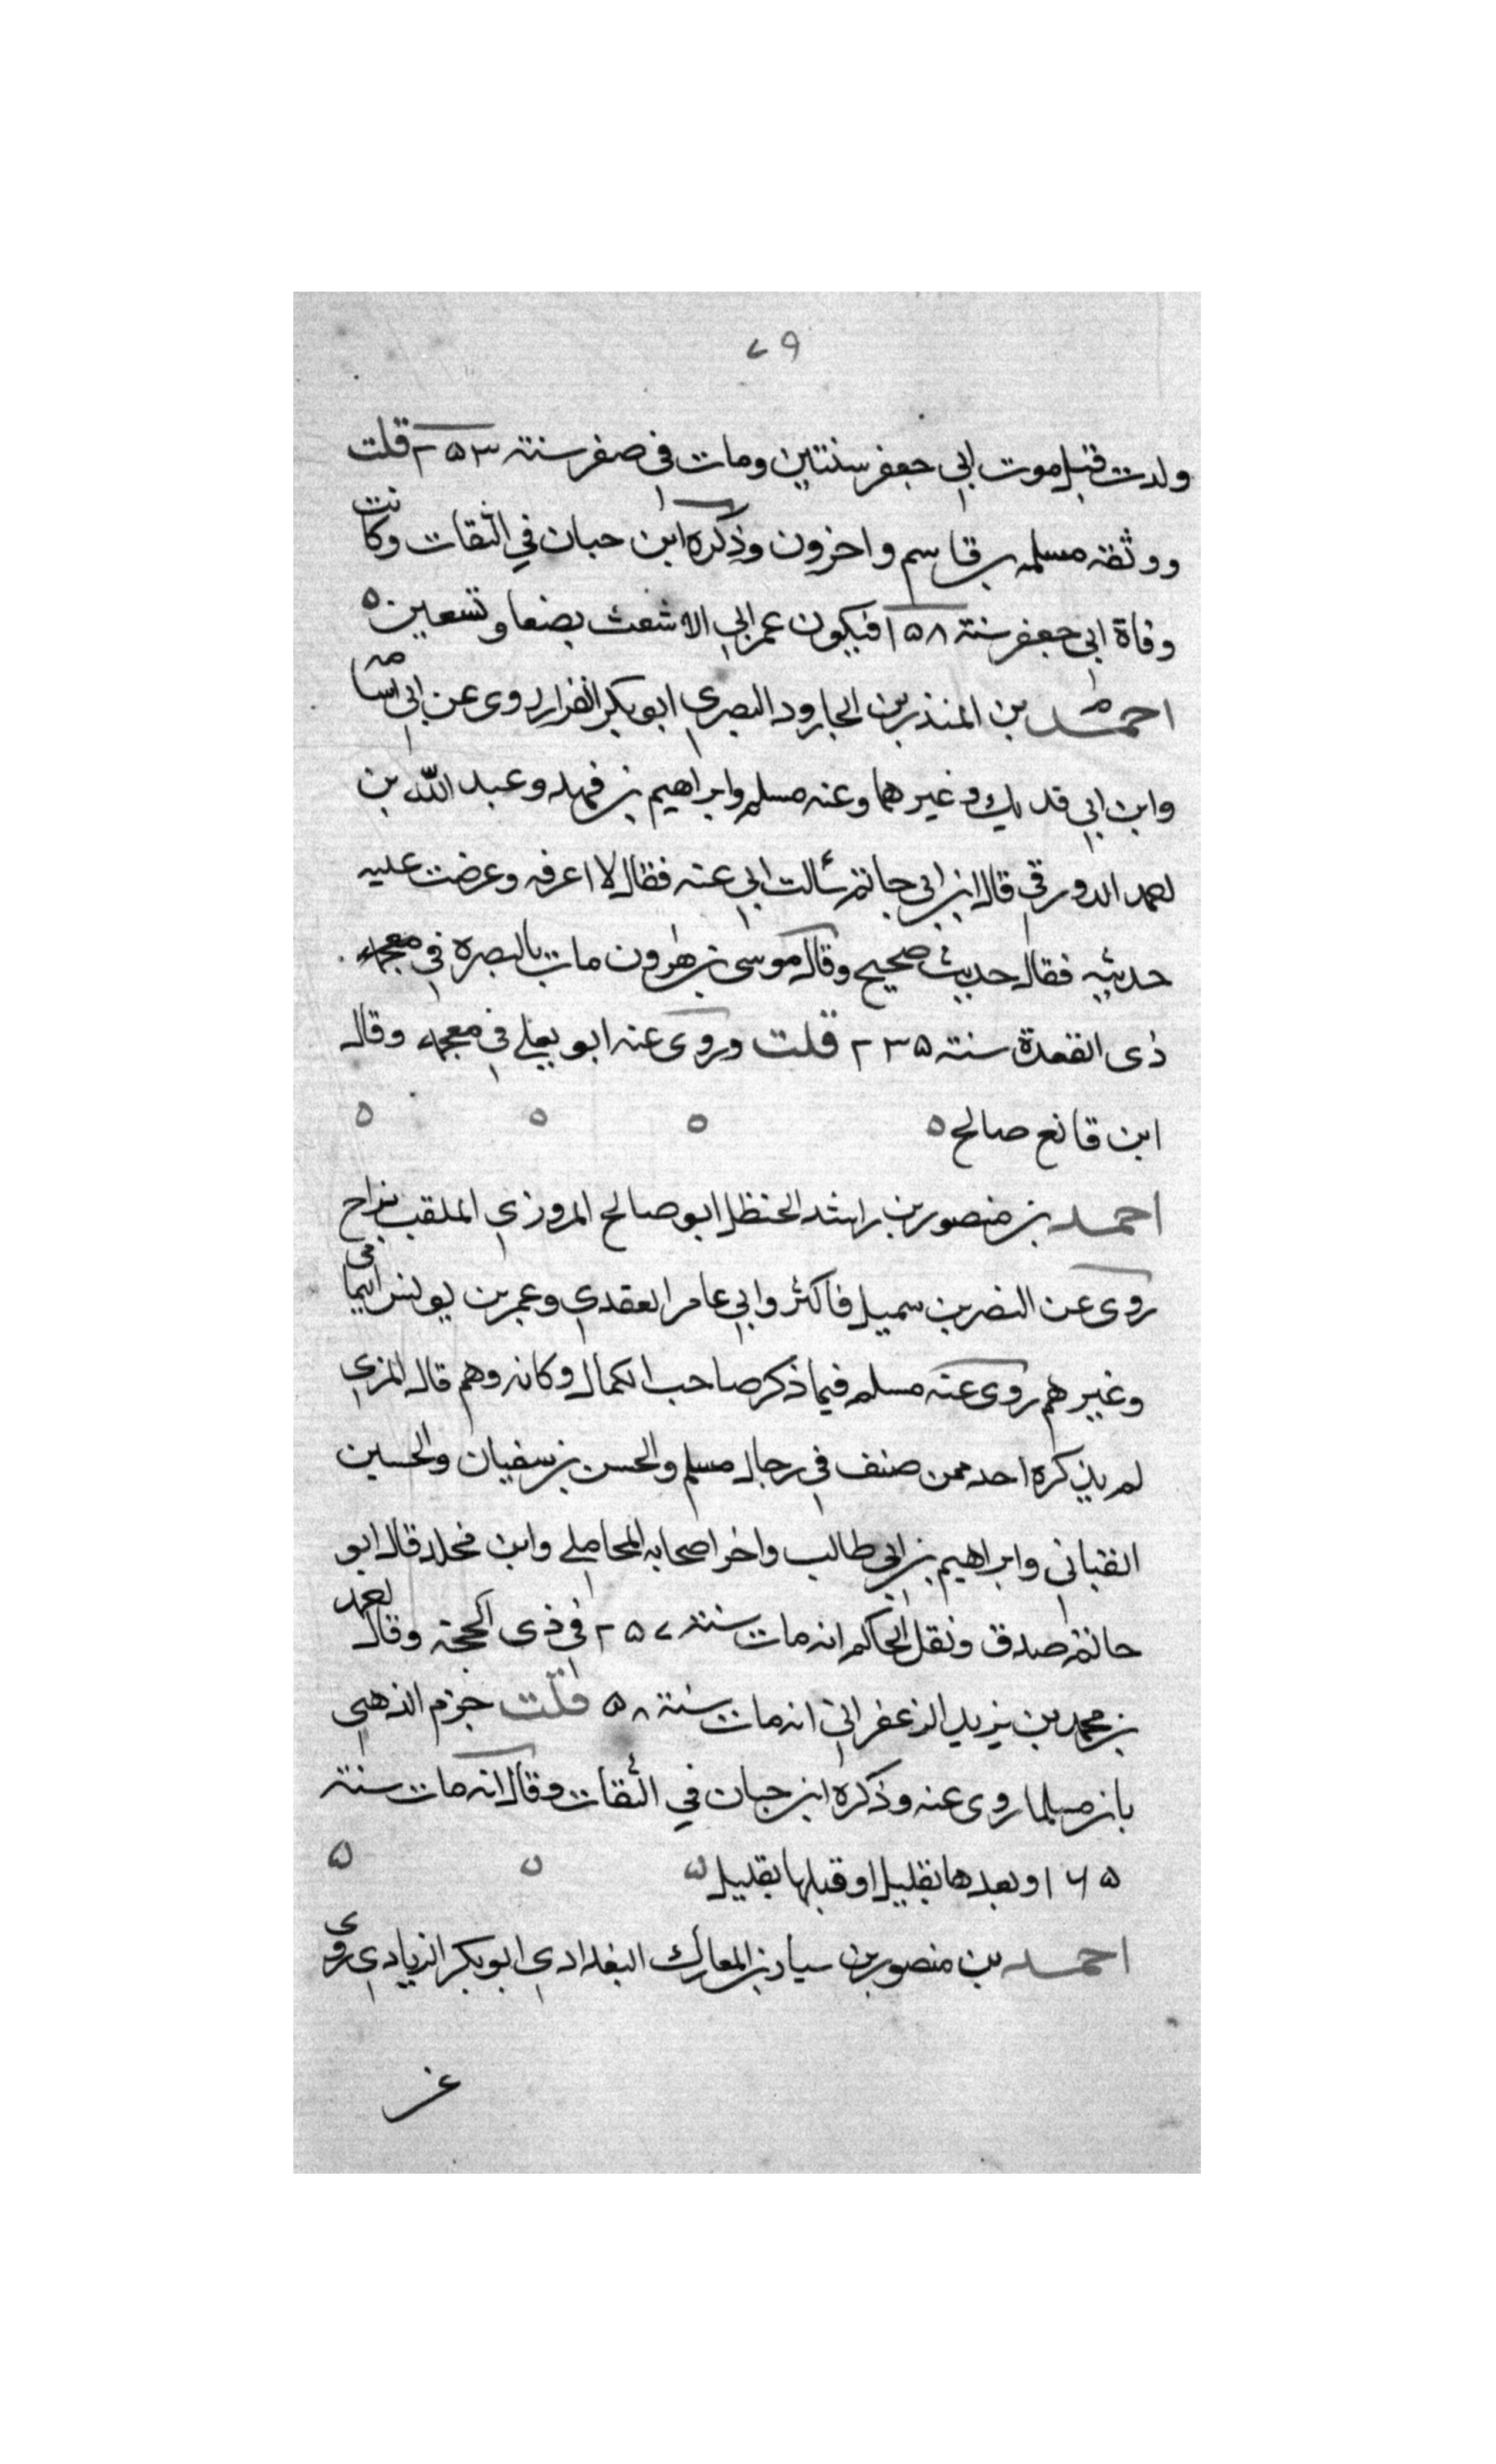 ٧٩
ولدت قبل موت ابي جعفر سنتين ومات في صفر سنة ٢٥٣ قلت
ووثقه مسلمه بن قاسم واخرون وذكره ابن حبان في الثقات وكانت
وفاة ابي جعفر سنة ١٥٨ فيكون عمر ابي الاشعث بضعا وتسعين ه
احمد بن المنذر بن الجارود البصري ابو بكر القزاز روى عن ابي اسامه
وابن ابي فديك وغيرهما وعنه مسلم وابراهيم بن فهد وعبد الله بن
احمد الدورقي قال ابن ابي حاتم سألت ابي عنه فقال لا اعرفه وعرضت عليه
حديثه فقال حديث صحيح وقال موسى بن هرون مات بالبصره في
ذى القعدة سنة ٢٣٥ قلت وروى عنه ابو يعلى في معجمه وقال
ابن قانع صالح ه ه ه ه
احمد بن منصور بن راشد الحنظلي ابو صالح المروزي الملقب بزاج
روى عن النضر بن سميل فاكثر وابي عامر العقدي وعمر بن يونس اليمامي
وغيرهم روى عنه مسلم فيما ذكر صاحب الكمال وكانه وهم قال المزي
لم يذكره احد ممن صنف في رجال مسلم والحسن بن سفيان والحسين
القباني وابراهيم بن ابي طالب واخر اصحابه المحاملي وابن مخلد قال ابو
حاتم صدق ونقل الحاكم انه مات سنة ٢٥٧ في ذى الحجة وقال احمد
بن محمد بن يزيد الزعفراني انه مات سنة ٥٨ قلت جزم الذهبي
بان مسلما روى عنه وذكره ابن حبان في الثقات وقال انه مات سنة
١٦٥ وبعدها بقليل او قبلها بقليل ه ه ه
احمد بن منصور بن سيار بن المعارك البغدادي ابو بكر الزيادي روى
عن